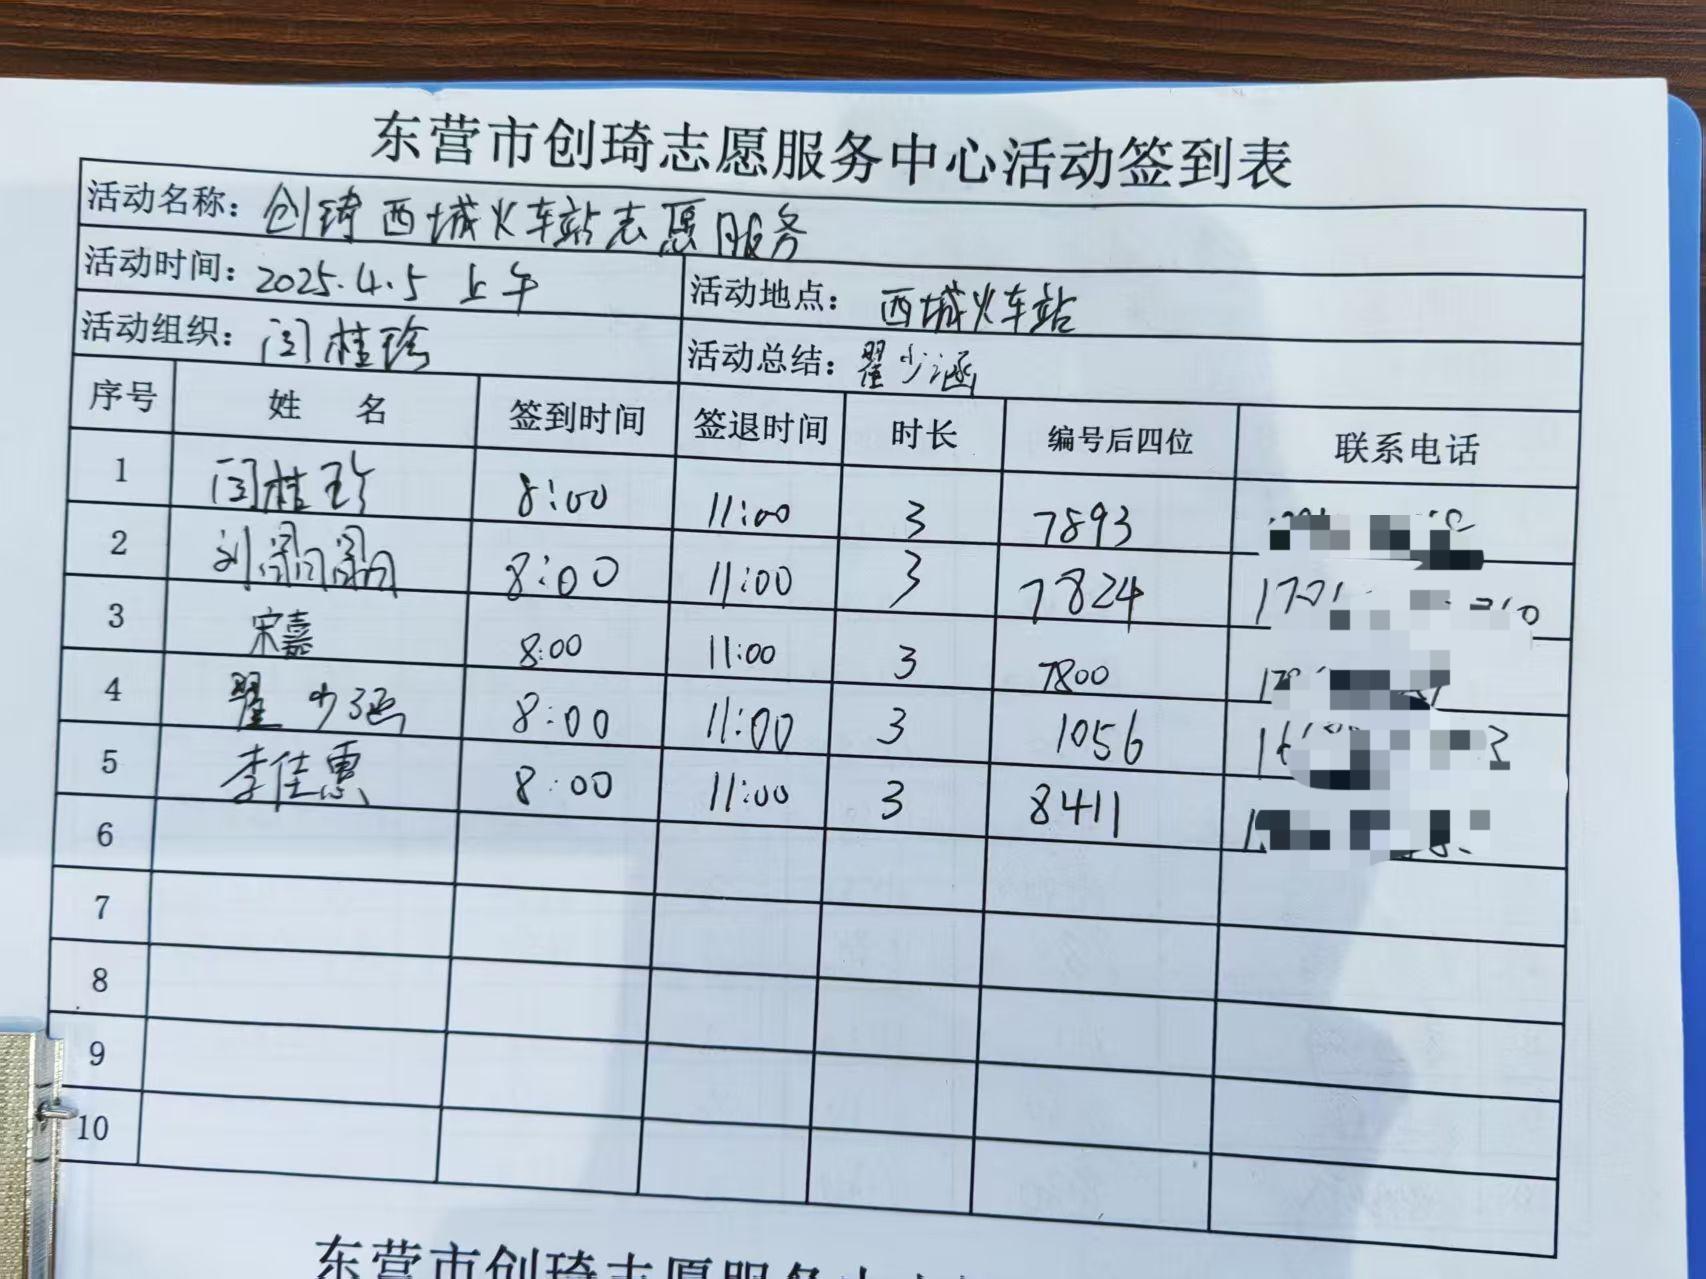 东营市创琦志愿服务中心活动签到表
活动名称：创琦西城火车站志愿服务
活动时间：2025.4.5 上午 活动地点：西城火车站
活动组织：闫桂珍 活动总结：翟少涵
序号 姓 名 签到时间 签退时间 时长 编号后四位 联系电话
1 闫桂珍 8:00 11:00 3 7893
2 刘 8:00 11:00 3 7824
3 宋嘉 8:00 11:00 3 7800
4 翟少涵 8:00 11:00 3 1056
5 李佳惠 8:00 11:00 3 8411
6
7
8
9
10
东营市创琦志愿服务中